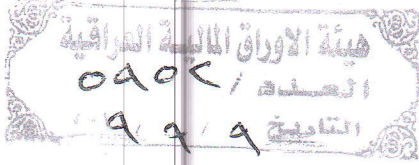 هيئة الاوراق المالية العراقية
العدد / ٥٩٥٢
التاريخ ٩ / ٩ / ٩